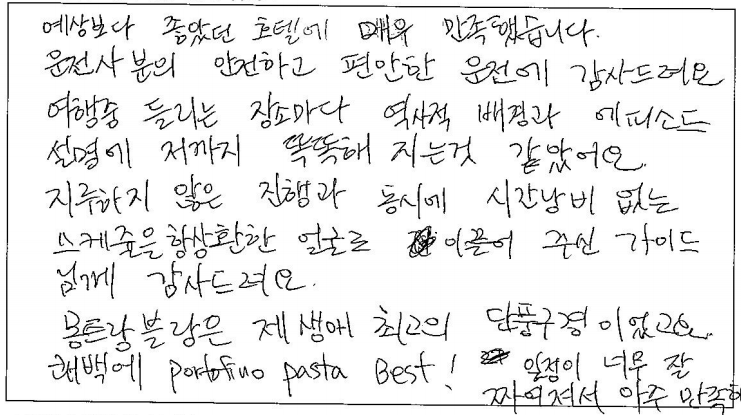 예상보다 좋았던 호텔에 매우 만족했습니다.
운전사분의 안전하고 편안한 운전에 감사드려요
여행중 들리는 장소마다 역사적 배경과 에피소드
설명에 저까지 똑똑해 지는것 같았어요.
지루하지 않은 진행과 동시에 시간낭비 없는
스케줄을 항상 환한 얼굴로 이끌어 주신 가이드
님께 감사드려요.
몽트랑블랑은 제 생애 최고의 단풍구경이었고요.
퀘벡에 portofino pasta Best! 일정이 너무 잘
짜여져서 아주 만족해